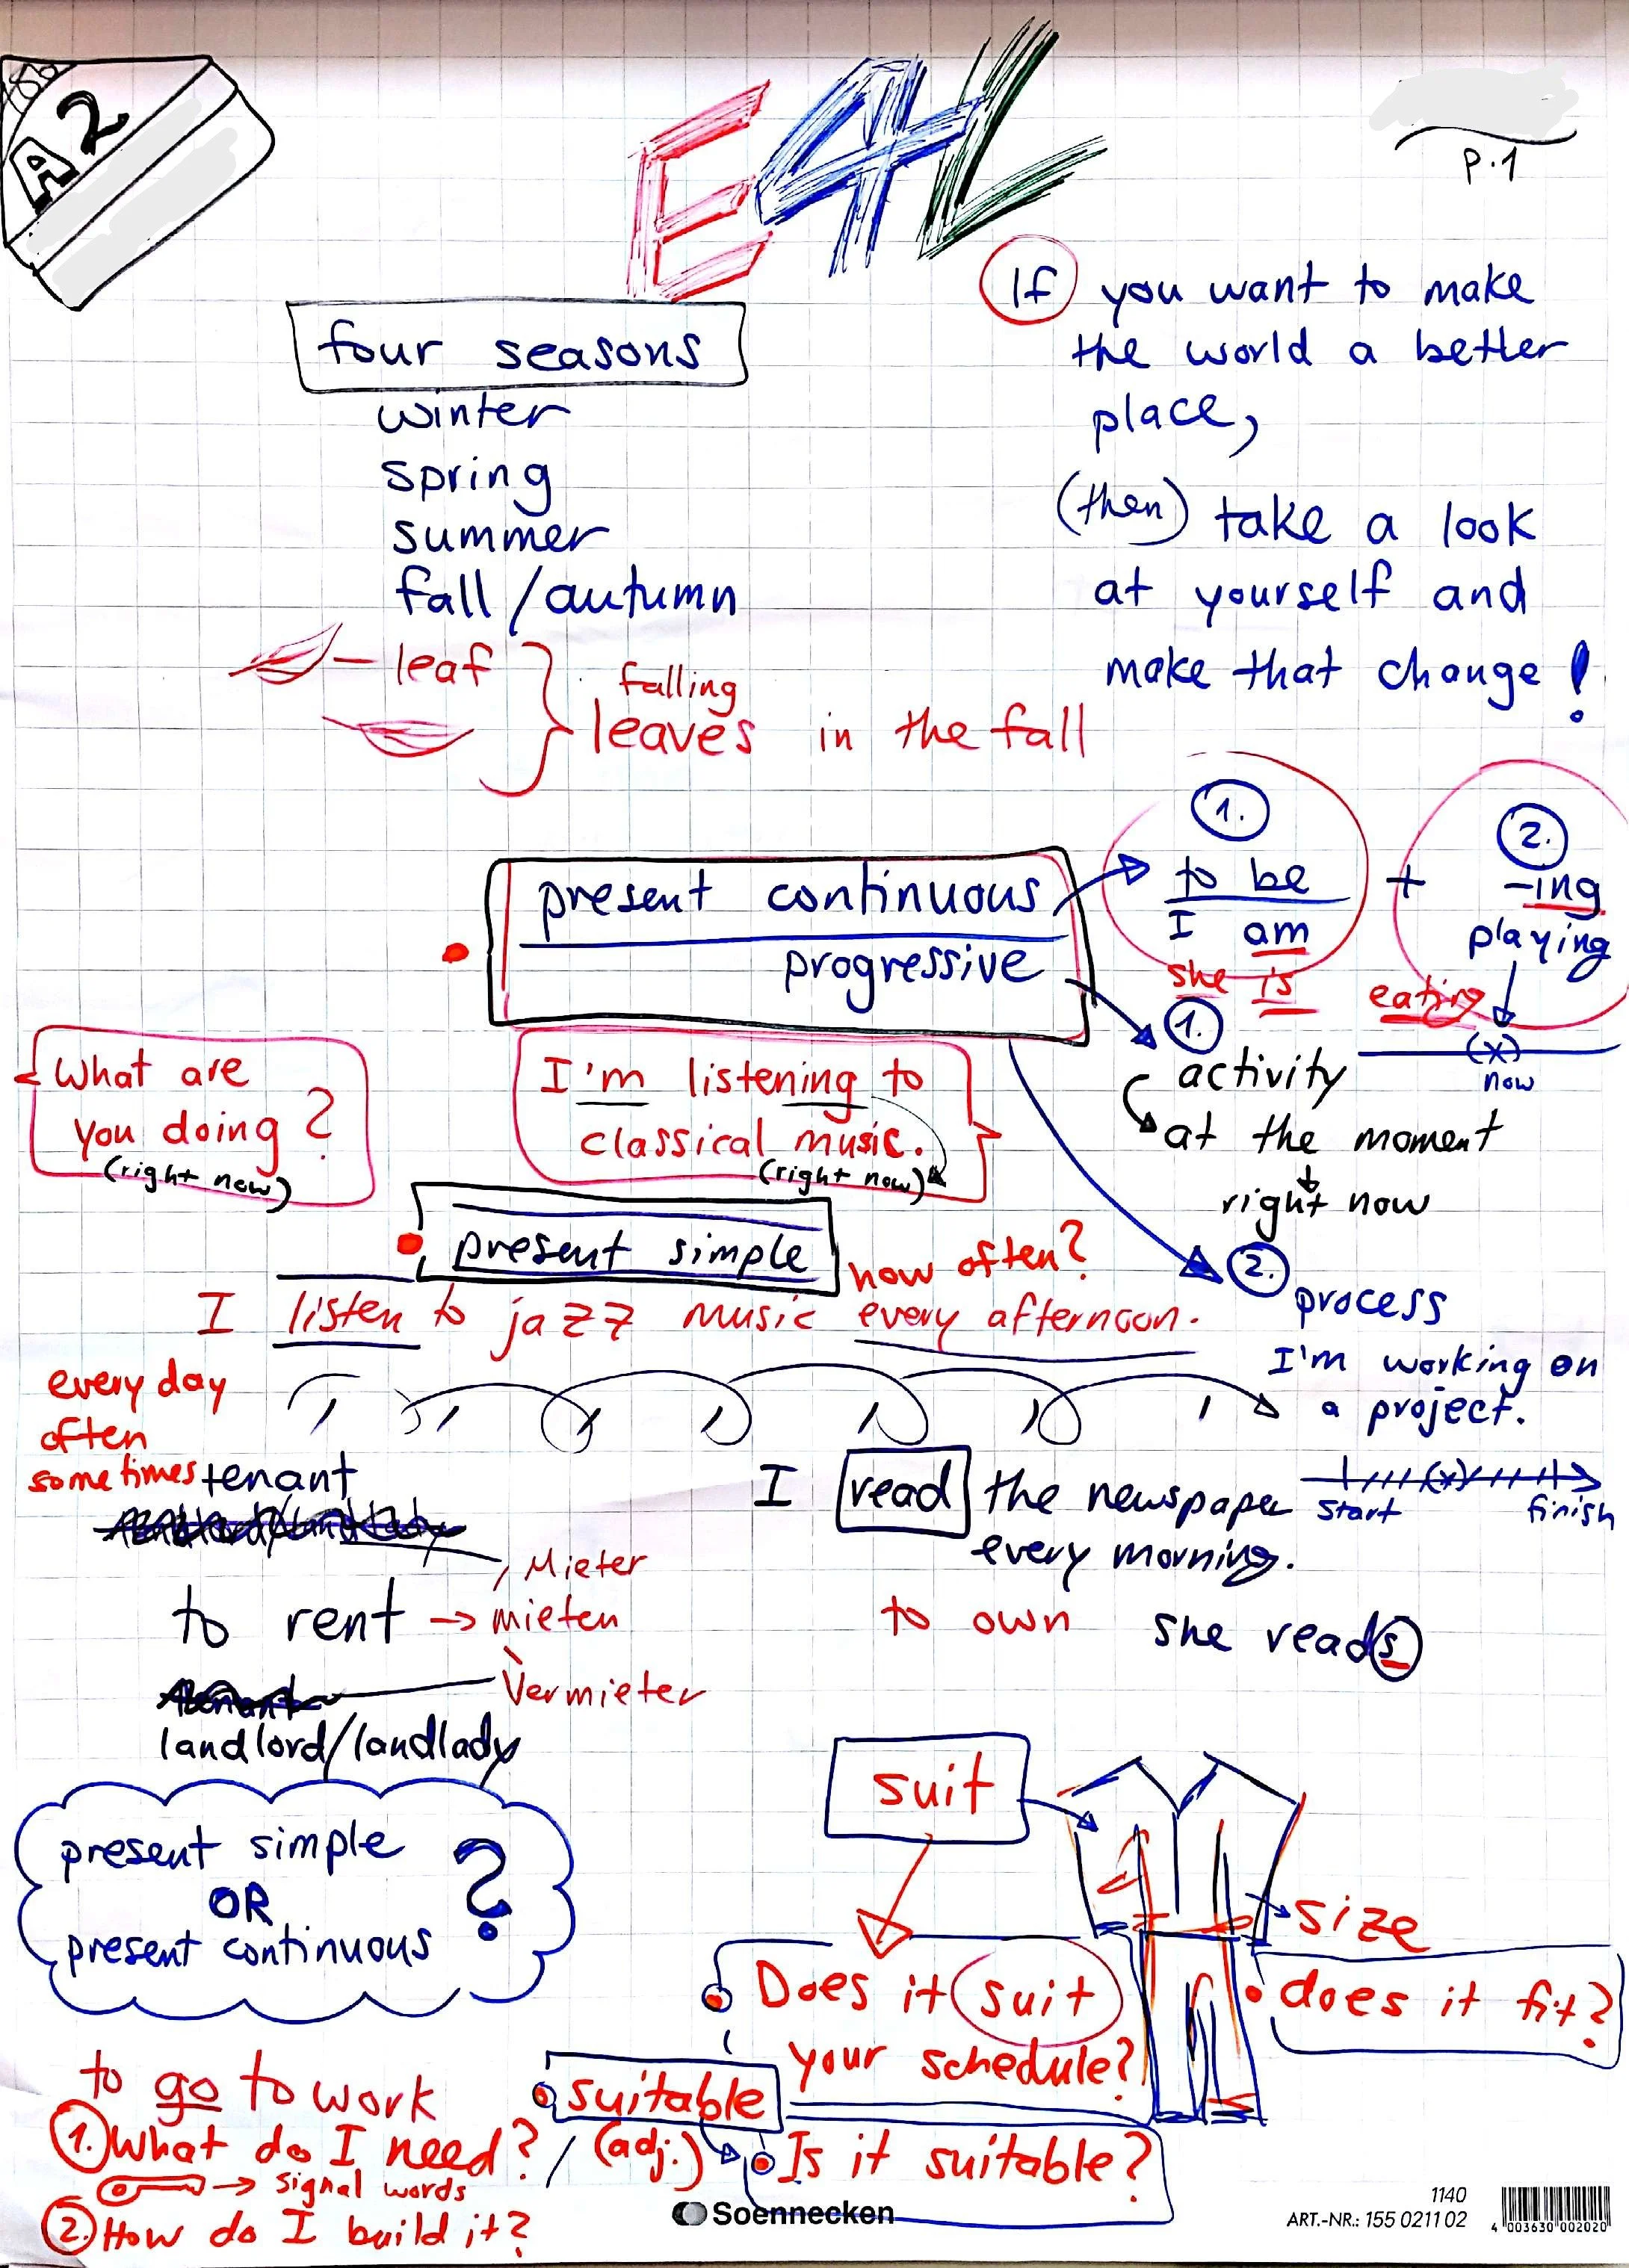 A2
E4L
p.1
four seasons
winter
spring
summer
fall/autumn
leaf
falling
leaves in the fall
If you want to make
the world a better
place,
(then) take a look
at yourself and
make that change!
present continuous
progressive
1.
to be + -ing
2.
I am playing
she is eating
(x)
now
1.
activity
at the moment
right now
2.
process
I'm working on
a project.
(x)
start finish
What are
you doing?
(right now)
I'm listening to
classical music.
(right now)
present simple
how often?
I listen to jazz music every afternoon.
every day
often
sometimes
tenant
Mieter
to rent → mieten
Vermieter
landlord/landlady
I read the newspaper
every morning.
to own
she reads
present simple
OR
present continuous
?
suit
size
Does it suit
your schedule?
does it fit?
suitable
(adj.)
Is it suitable?
to go to work
1. What do I need?
→ signal words
2. How do I build it?
Soennecken
1140
ART.-NR.: 155 0211 02
4 003630 002020